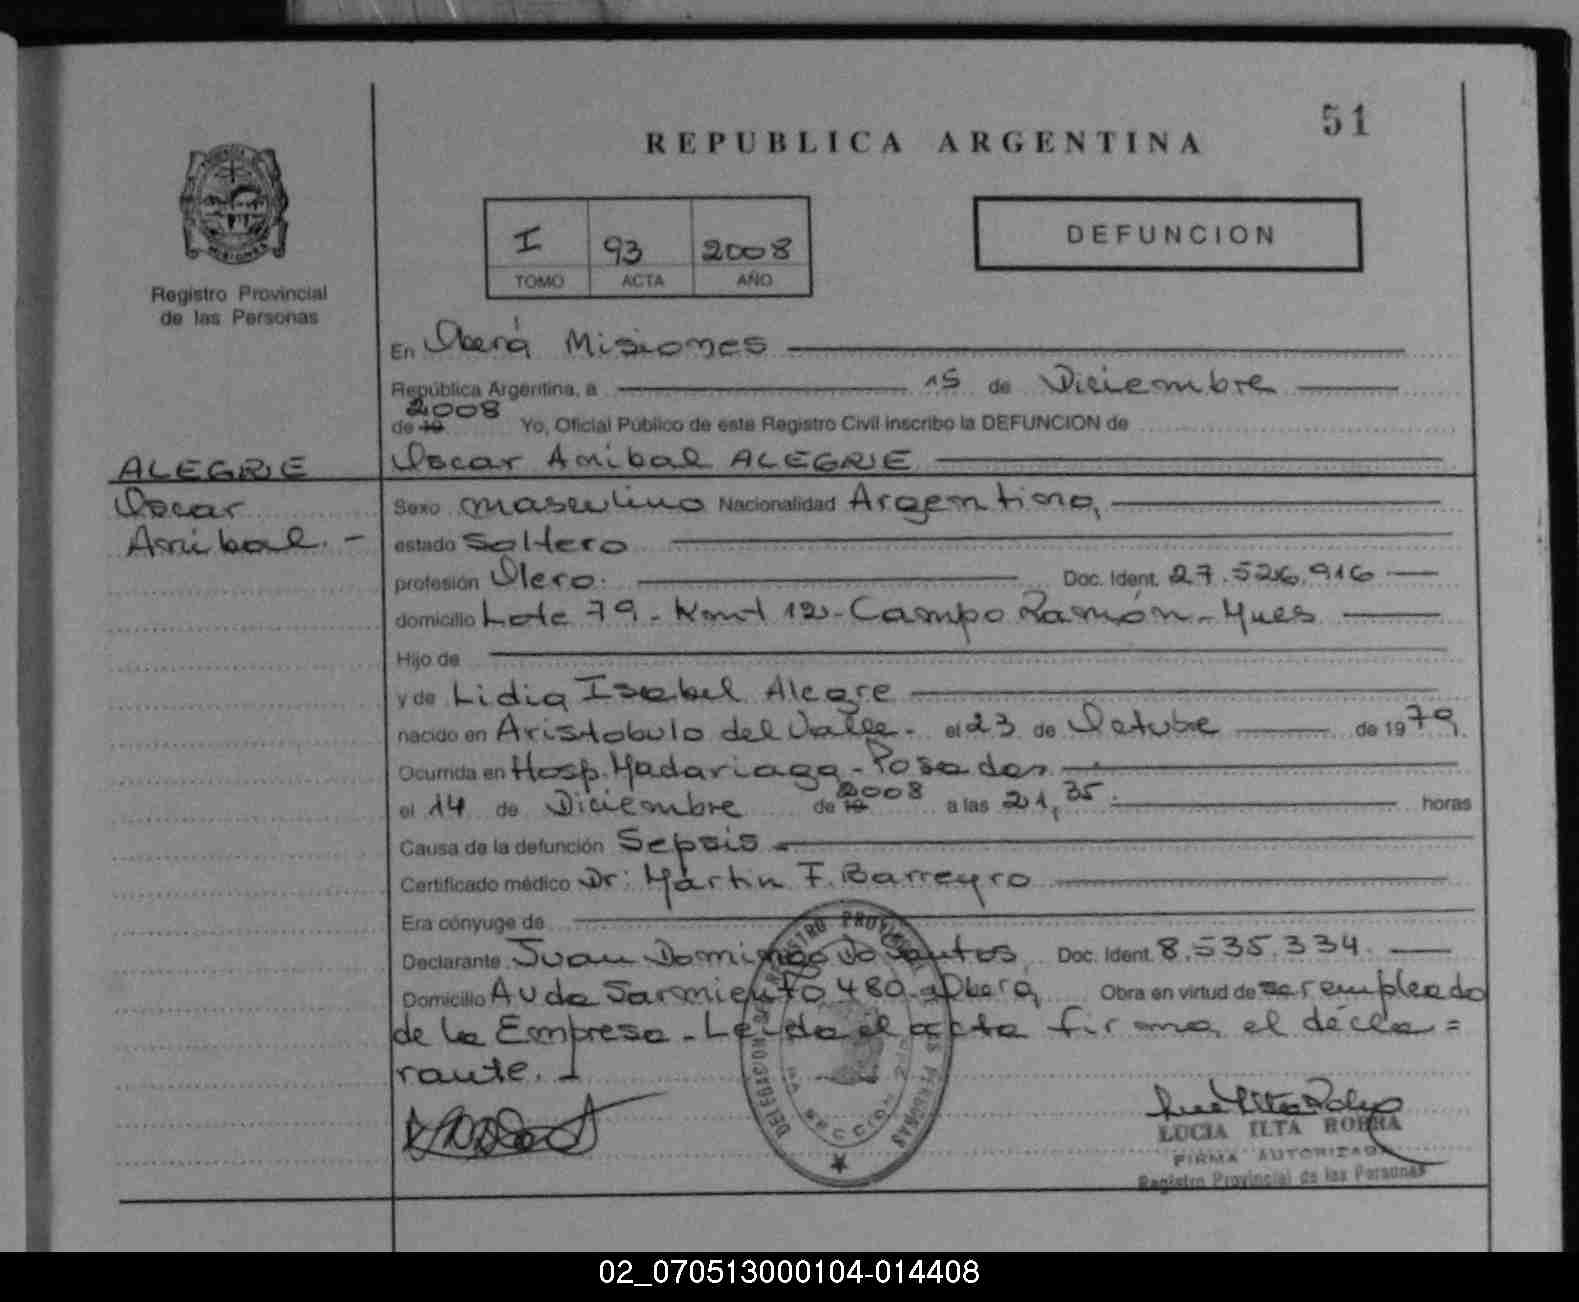 51
REPUBLICA ARGENTINA
I 93 2008
TOMO ACTA AÑO
DEFUNCION
MISIONES
Registro Provincial
de las Personas
En Oberá Misiones
República Argentina, a 15 de Diciembre
2008
de 19 Yo, Oficial Público de este Registro Civil inscribo la DEFUNCION de
ALEGRE Oscar Anibal ALEGRE
Oscar Sexo masculino Nacionalidad Argentina,
Anibal. - estado Soltero
profesión Olero. Doc. Ident. 27.526.916
domicilio Lote 79 - Kmt 12 - Campo Ramón - Mnes
Hijo de
y de Lidia Isabel Alegre
nacido en Aristobulo del Valle. el 23 de Octubre de 1979.
Ocurrida en Hosp. Madariaga - Posadas
2008
el 14 de Diciembre de 19 a las 21,35. horas
Causa de la defunción Sepsis
Certificado médico Dr: Martin F. Barreyro
Era cónyuge de
Declarante Juan Domingo Do Santos Doc. Ident. 8.535.334.
Domicilio Avda Sarmiento 480 - Oberá, Obra en virtud de ser empleado
de la Empresa - Leida el acta firma el decla=
rante. -
LUCIA ILTA ROBRA
FIRMA AUTORIZADA
Registro Provincial de las Personas
02_070513000104-014408